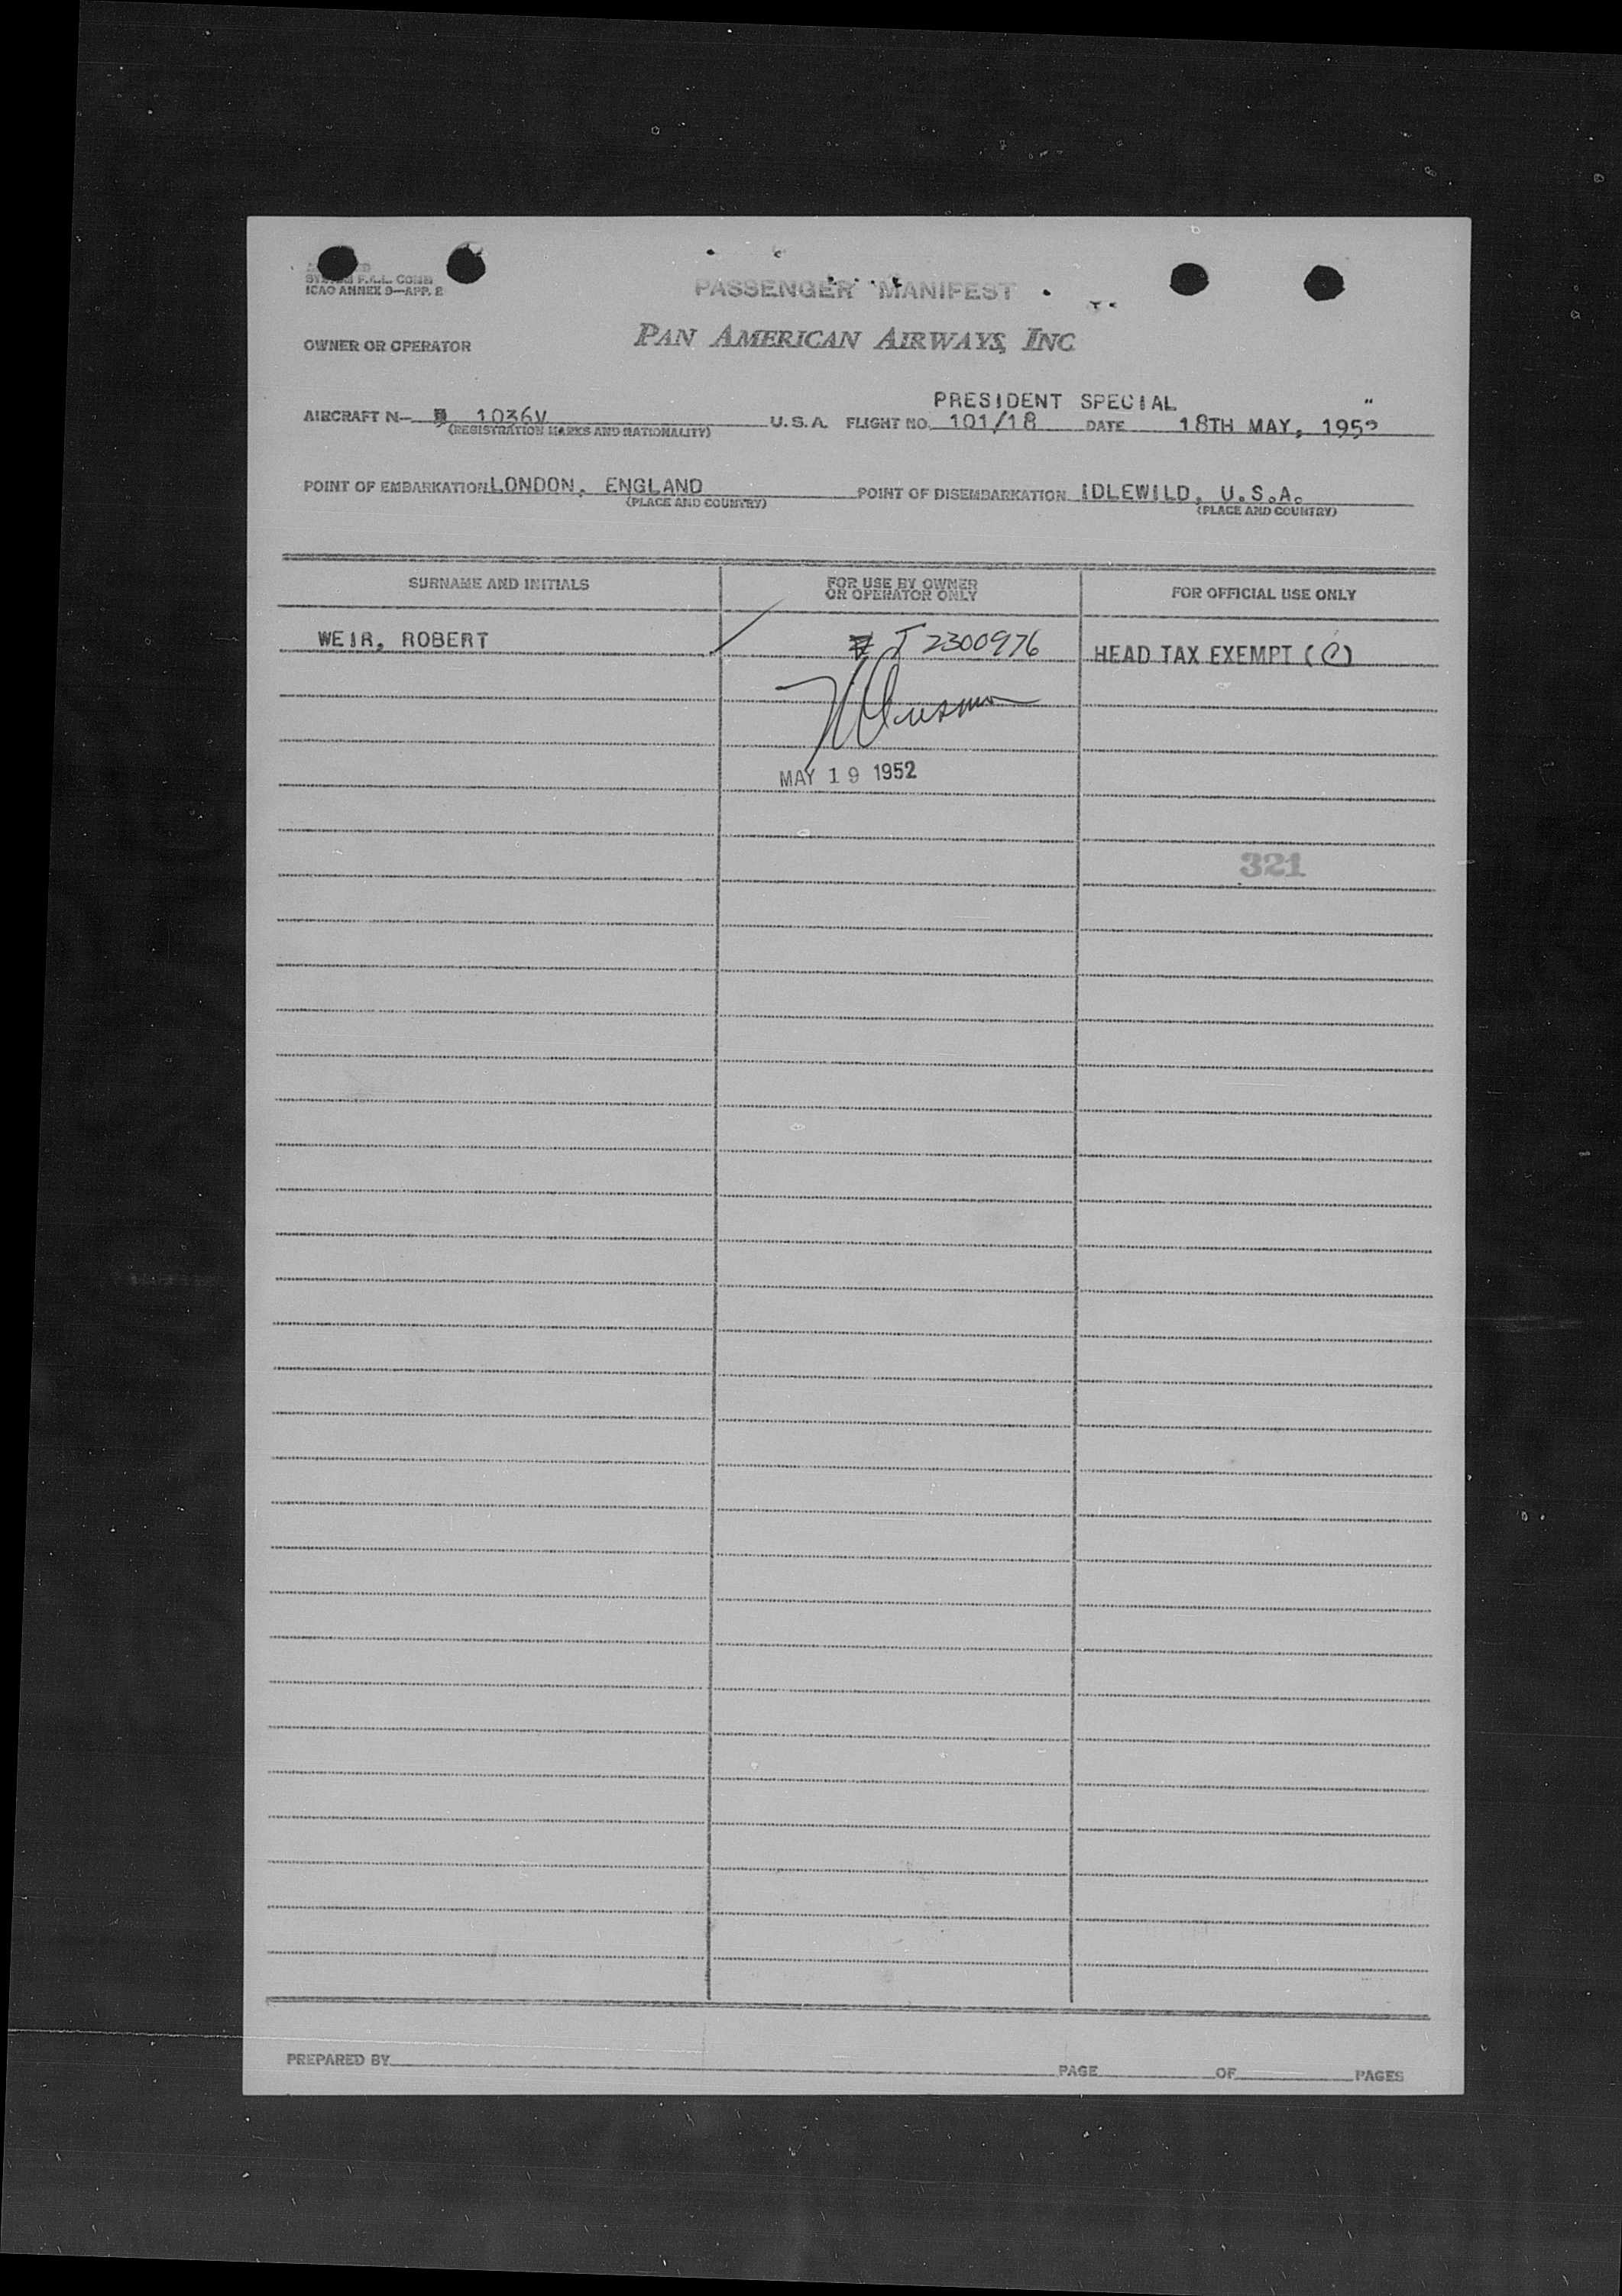 SYSTEM F.A.L. COMB
ICAO ANNEX 9—APP. 2
PASSENGER MANIFEST
OWNER OR OPERATOR
PAN AMERICAN AIRWAYS, INC
PRESIDENT SPECIAL "
AIRCRAFT N— 1036V U.S.A. FLIGHT NO. 101/18 DATE 18TH MAY, 1952
(REGISTRATION MARKS AND NATIONALITY)
POINT OF EMBARKATION LONDON, ENGLAND POINT OF DISEMBARKATION IDLEWILD, U.S.A.
(PLACE AND COUNTRY) (PLACE AND COUNTRY)
SURNAME AND INITIALS FOR USE BY OWNER OR OPERATOR ONLY FOR OFFICIAL USE ONLY
WEIR, ROBERT I 2300976 HEAD TAX EXEMPT (C)
MAY 19 1952
321
PREPARED BY PAGE OF PAGES